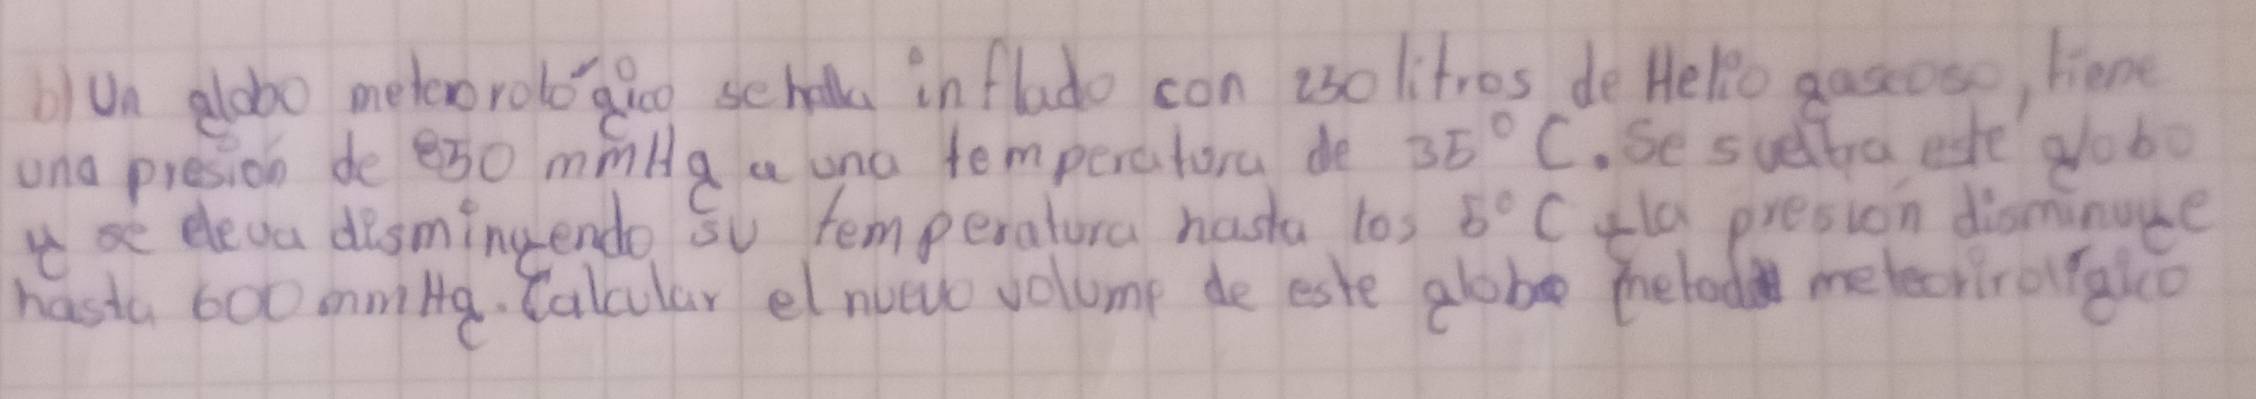 b) Un globo meteorológico se halla inflado con 250 litros de Helio gaseoso, tiene
una presión de 850 mmHg a una temperatura de 35°C. Se suelta este globo
y se eleva disminyendo su temperatura hasta los 5°C y la presión disminuye
hasta 600 mmHg. Calcular el nuevo volume de este globo meteorirolígico